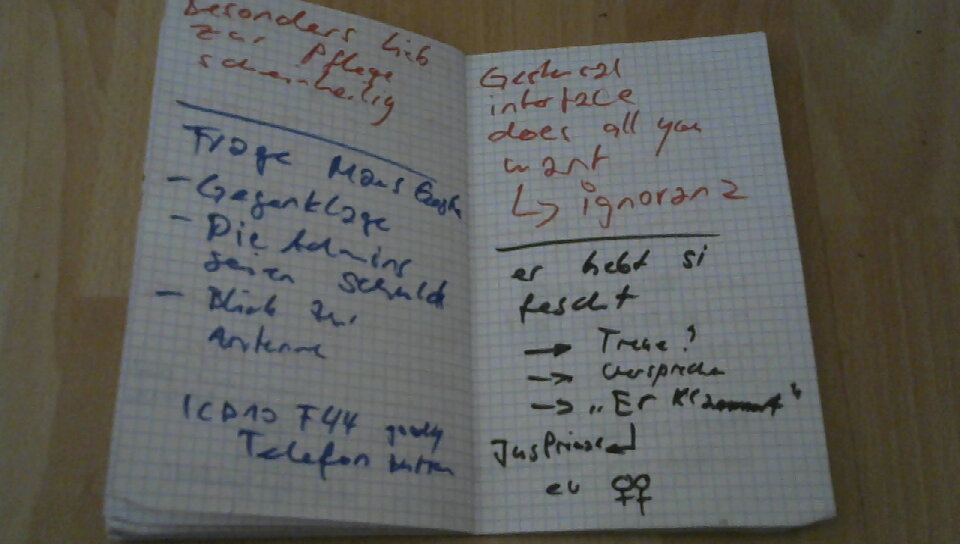 besonders lieb
zur Pflege
scheinheilig
Frage Hans
- Gegenklage
- Die Admins
seien Schuld
- Blick zur
Antenne
ICD10 F44
Telefon
General
interface
does all you
want
↳ ignoranz
er hebt si
fescht
→ Treue?
→ versprechen
→ „Er
♀♀